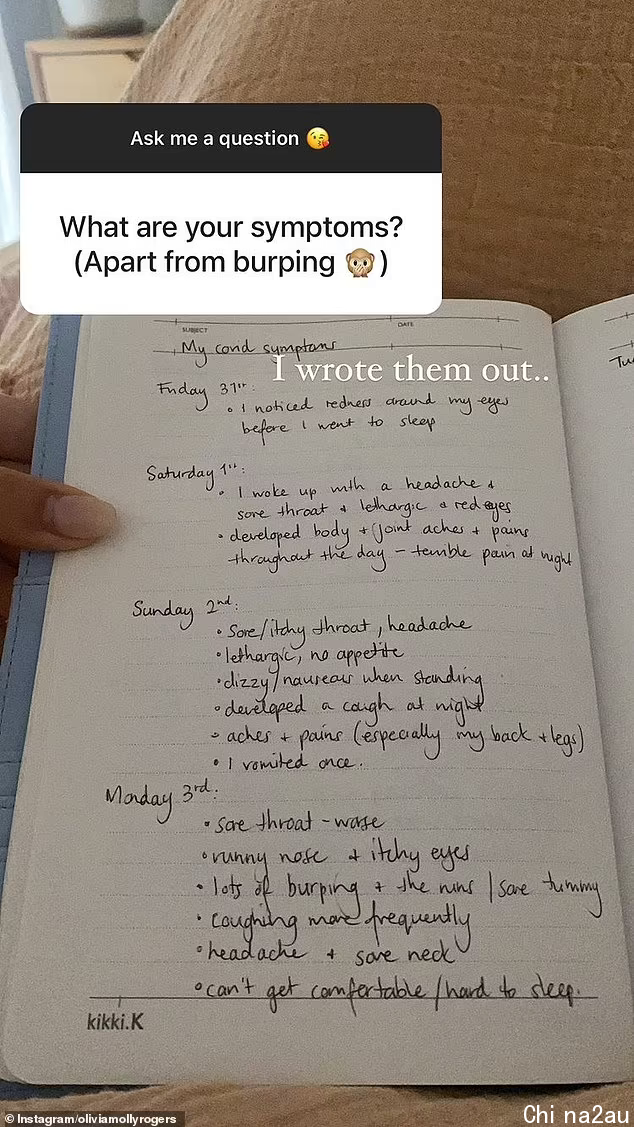 Ask me a question 😘
What are your symptoms?
(Apart from burping 🙊)
SUBJECT
DATE
My covid symptoms
I wrote them out..
Tu
Friday 31st:
• I noticed redness around my eyes
before I went to sleep
Saturday 1st:
• I woke up with a headache +
sore throat + lethargic + red eyes
• developed body + joint aches + pains
throughout the day – terrible pain at night
Sunday 2nd:
• Sore/itchy throat, headache
• lethargic, no appetite
• dizzy/nauseous when standing
• developed a cough at night
• aches + pains (especially my back + legs)
• I vomited once.
Monday 3rd:
• sore throat – worse
• runny nose + itchy eyes
• lots of burping + the runs / sore tummy
• coughing more frequently
• headache + sore neck
• can't get comfortable/hard to sleep.
kikki.K
© Instagram/oliviamollyrogers
Chi na2au